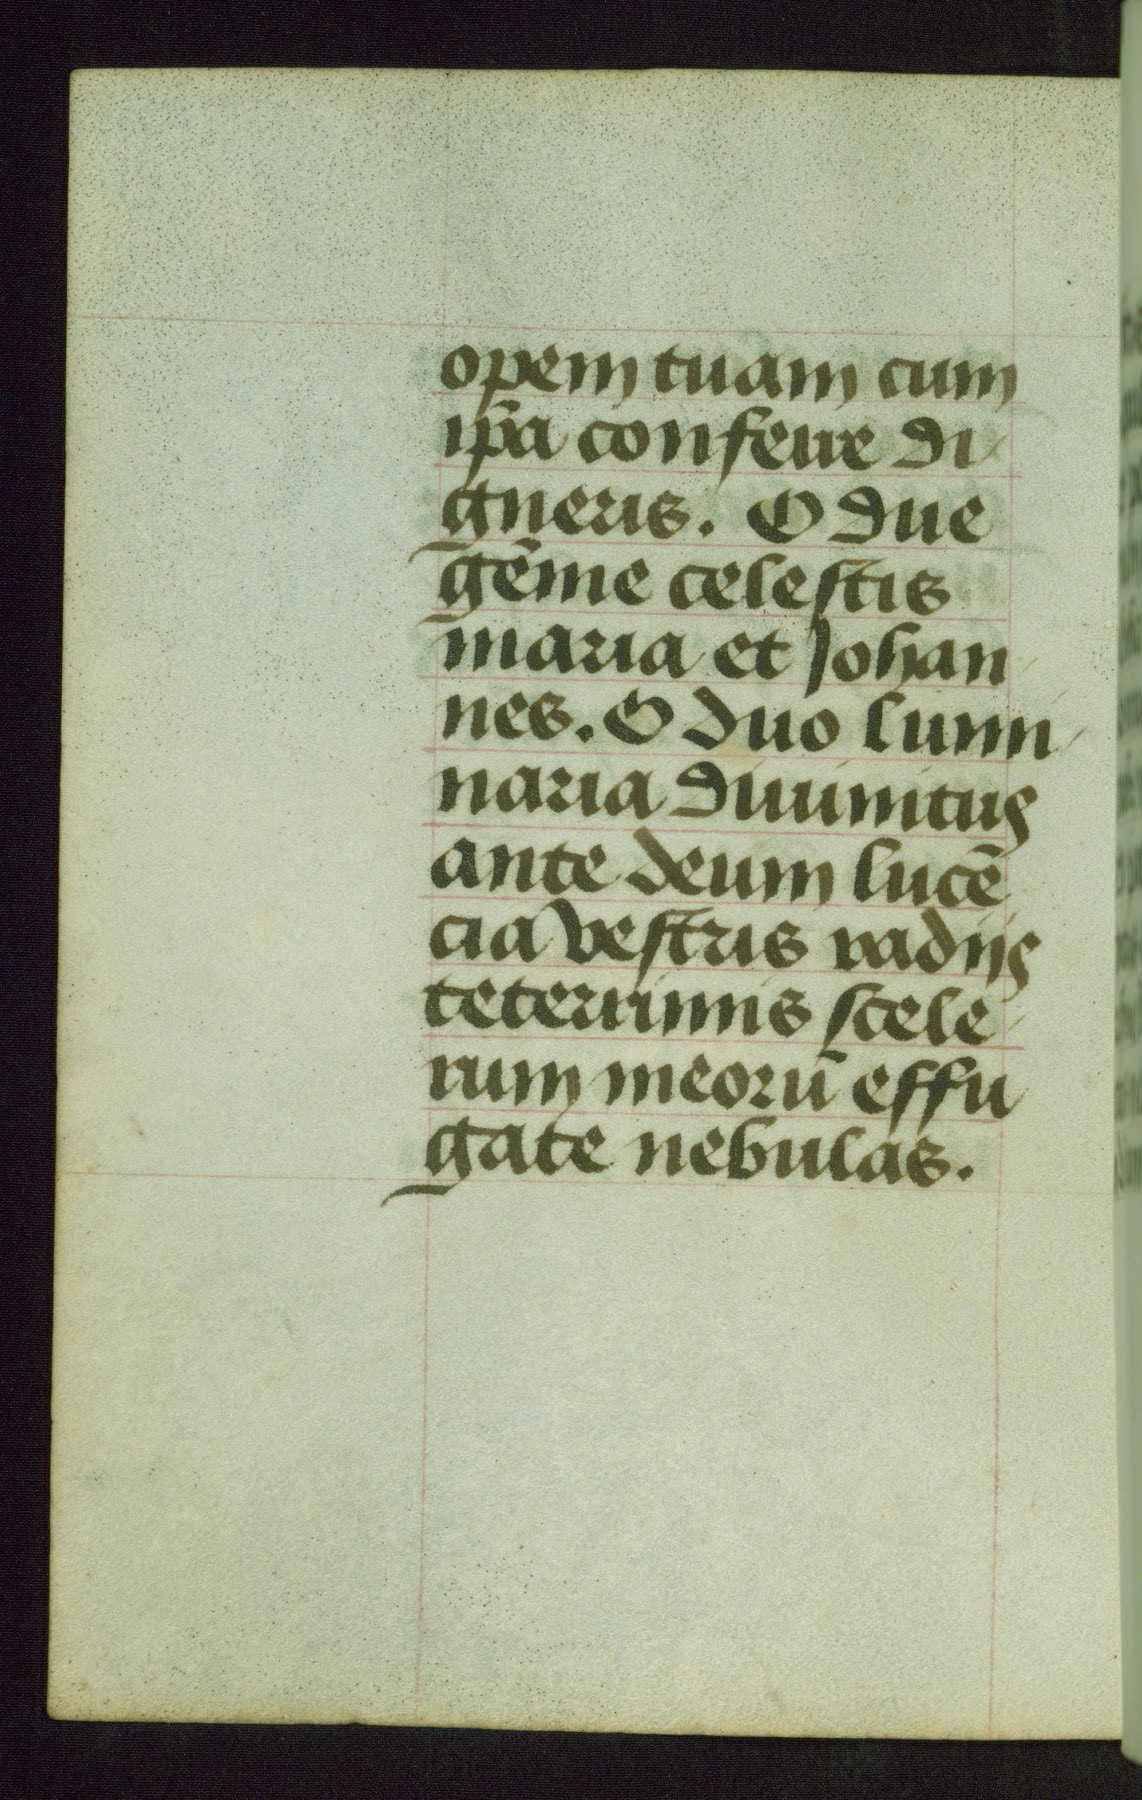 opem tuam cum
ip̄a conferre di
gneris. O due
gēme celestis
maria et Johan
nes. O duo lumi
naria diuinitus
ante deum lucē
cia vestris radijs
teterrimis scele
rum meorū effu
gate nebulas.